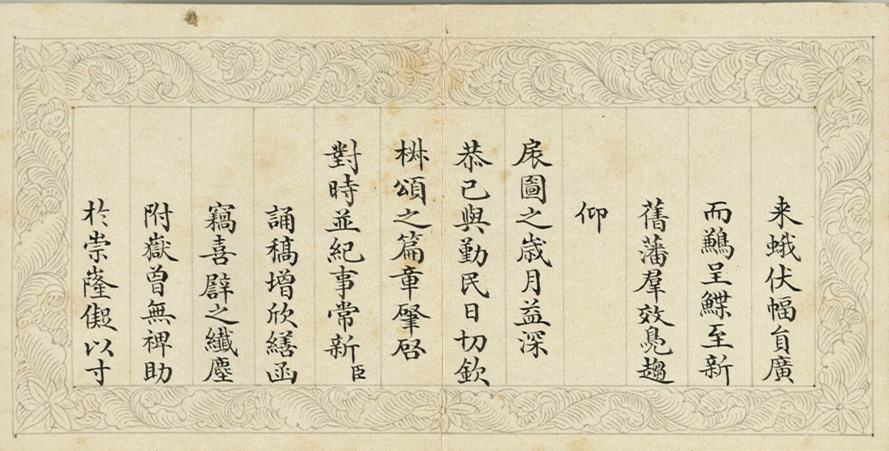 来蛾伏幅員廣
而鷫呈鰈至新
舊藩羣效鳧趨
仰
扆圖之歲月益深
恭己與勤民日切欽
椕頌之篇章肇啓
對時並紀事常新臣
誦稿增欣繕函
竊喜譬之纖塵
附嶽曾無裨助
於崇隆儗以寸